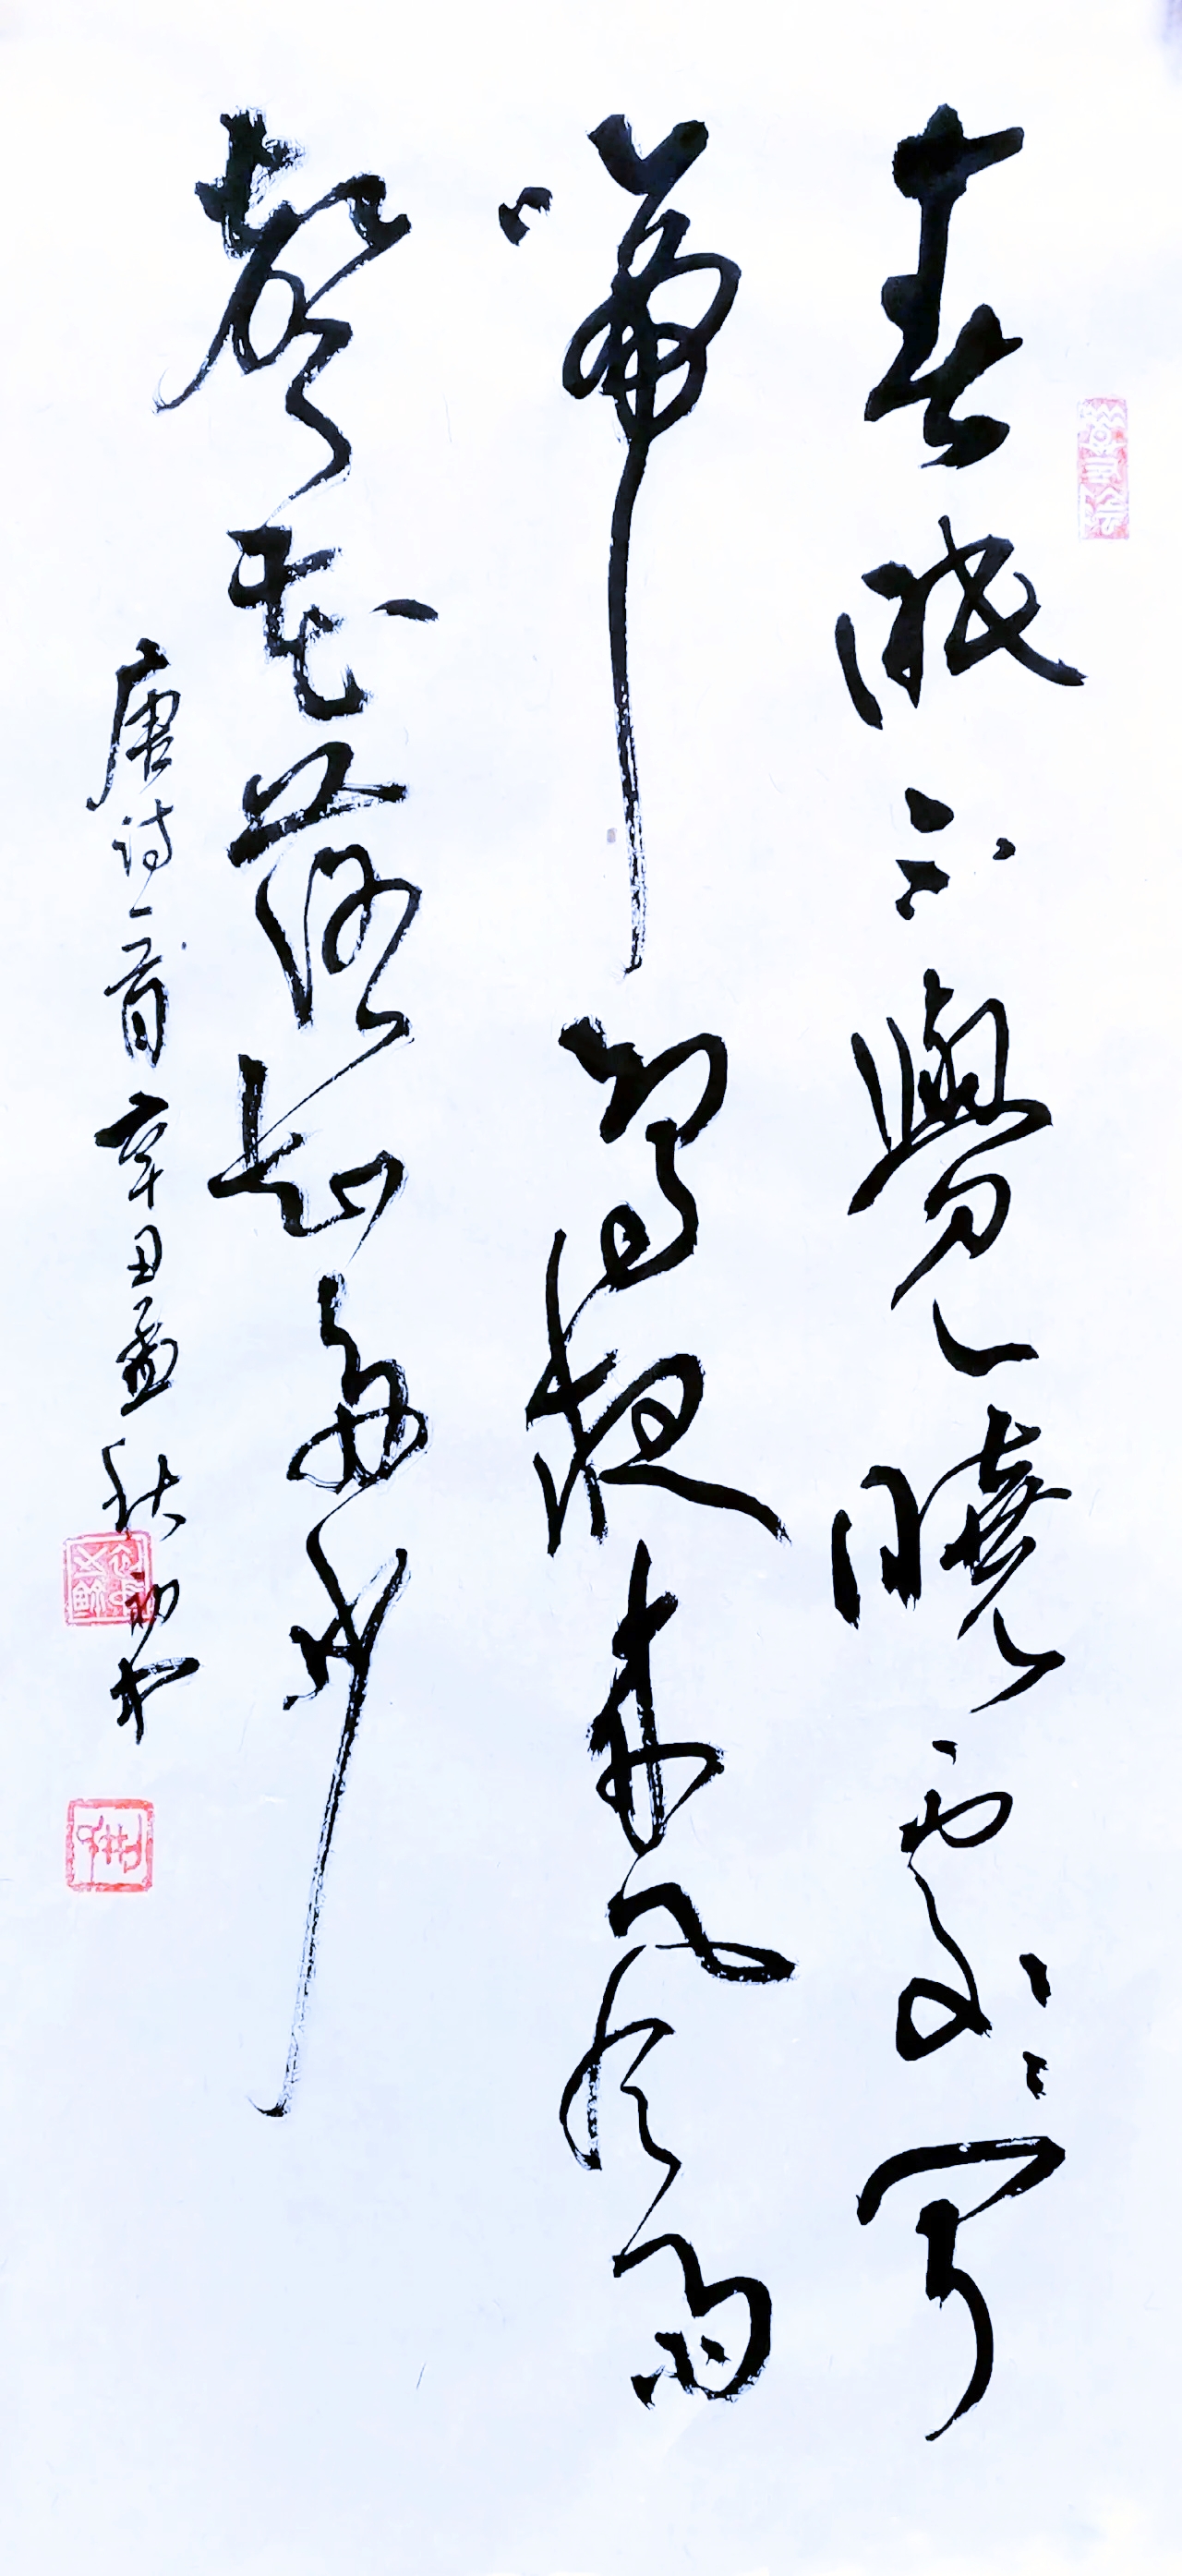 春眠不觉晓处处闻
啼鸟夜来风雨
声花落知多少
唐诗一首辛丑孟秋